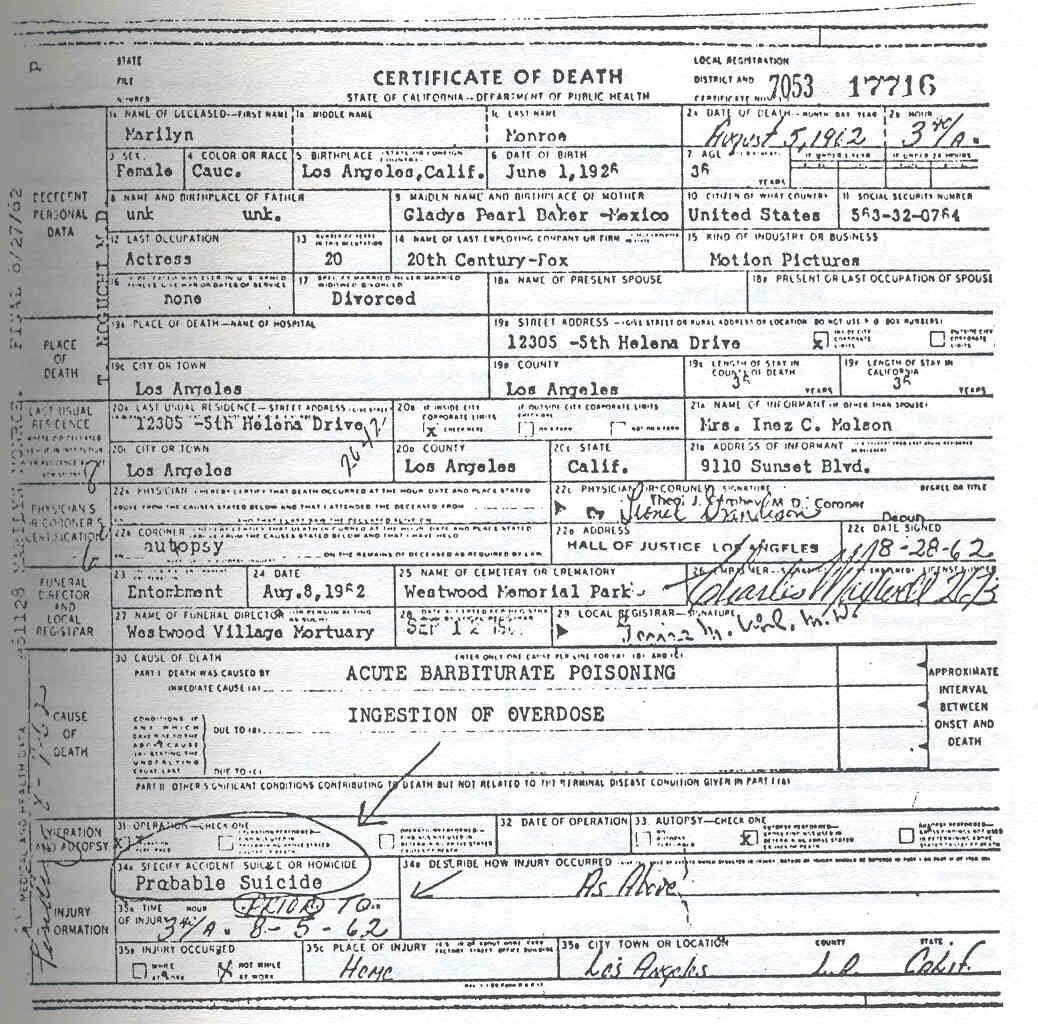 STATE
FILE
NUMBER
CERTIFICATE OF DEATH
STATE OF CALIFORNIA—DEPARTMENT OF PUBLIC HEALTH
LOCAL REGISTRATION
DISTRICT AND 7053 17716
CERTIFICATE
1A NAME OF DECEASED—FIRST NAME 1B MIDDLE NAME 1C LAST NAME 2A DATE OF DEATH—MONTH DAY YEAR 2B HOUR
Marilyn Monroe August 5, 1962 3 40/A.
3 SEX 4 COLOR OR RACE 5 BIRTHPLACE 6 DATE OF BIRTH 7 AGE
Female Cauc. Los Angeles, Calif. June 1, 1926 36 YEARS
DECEDENT
PERSONAL
DATA
8 NAME AND BIRTHPLACE OF FATHER 9 MAIDEN NAME AND BIRTHPLACE OF MOTHER 10 CITIZEN OF WHAT COUNTRY 11 SOCIAL SECURITY NUMBER
unk unk. Gladys Pearl Baker -Mexico United States 563-32-0764
12 LAST OCCUPATION 13 14 NAME OF LAST EMPLOYING COMPANY OR FIRM 15 KIND OF INDUSTRY OR BUSINESS
Actress 20 20th Century-Fox Motion Pictures
16 17 18A NAME OF PRESENT SPOUSE 18B PRESENT OR LAST OCCUPATION OF SPOUSE
none Divorced
PLACE
OF
DEATH
19A PLACE OF DEATH—NAME OF HOSPITAL 19B STREET ADDRESS
12305 -5th Helena Drive X
19C CITY OR TOWN 19D COUNTY 19E LENGTH OF STAY IN COUNTY OF DEATH 19F LENGTH OF STAY IN CALIFORNIA
Los Angeles Los Angeles 36 YEARS 36 YEARS
LAST USUAL
RESIDENCE
20A LAST USUAL RESIDENCE—STREET ADDRESS 20B IF INSIDE CITY CORPORATE LIMITS IF OUTSIDE CITY CORPORATE LIMITS 21A NAME OF INFORMANT
12305 -5th Helena Drive X CHECK HERE Mrs. Inez C. Melson
20C CITY OR TOWN 20D COUNTY 20E STATE 21B ADDRESS OF INFORMANT
Los Angeles Los Angeles Calif. 9110 Sunset Blvd.
PHYSICIAN'S
OR CORONER'S
CERTIFICATION
22A PHYSICIAN 22C PHYSICIAN OR CORONER SIGNATURE DEGREE OR TITLE
M D; Coroner
22B CORONER 22D ADDRESS 22E DATE SIGNED
autopsy HALL OF JUSTICE LOS ANGELES 8-28-62
ON THE REMAINS OF DECEASED AS REQUIRED BY LAW
FUNERAL
DIRECTOR
AND
LOCAL
REGISTRAR
23 24 DATE 25 NAME OF CEMETERY OR CREMATORY 26
Entombment Aug. 8, 1962 Westwood Memorial Park
27 NAME OF FUNERAL DIRECTOR 28 29 LOCAL REGISTRAR—SIGNATURE
Westwood Village Mortuary SEP 12
CAUSE
OF
DEATH
30 CAUSE OF DEATH ENTER ONLY ONE CAUSE PER LINE FOR (A) (B) AND (C)
PART I DEATH WAS CAUSED BY
IMMEDIATE CAUSE (A) ACUTE BARBITURATE POISONING
DUE TO (B) INGESTION OF OVERDOSE
DUE TO (C)
APPROXIMATE
INTERVAL
BETWEEN
ONSET AND
DEATH
PART II OTHER SIGNIFICANT CONDITIONS CONTRIBUTING TO DEATH BUT NOT RELATED TO THE TERMINAL DISEASE CONDITION GIVEN IN PART I (A)
OPERATION
AND AUTOPSY
31 OPERATION—CHECK ONE 32 DATE OF OPERATION 33. AUTOPSY—CHECK ONE
X X
INJURY
INFORMATION
34A SPECIFY ACCIDENT SUICIDE OR HOMICIDE 34B DESCRIBE HOW INJURY OCCURRED
Probable Suicide As Above
35A TIME OF INJURY HOUR PRIOR TO
3 40/A. 8-5-62
35B INJURY OCCURRED 35C PLACE OF INJURY 35D CITY TOWN OR LOCATION COUNTY STATE
WHILE AT WORK X NOT WHILE AT WORK Home Los Angeles L.A. Calif.